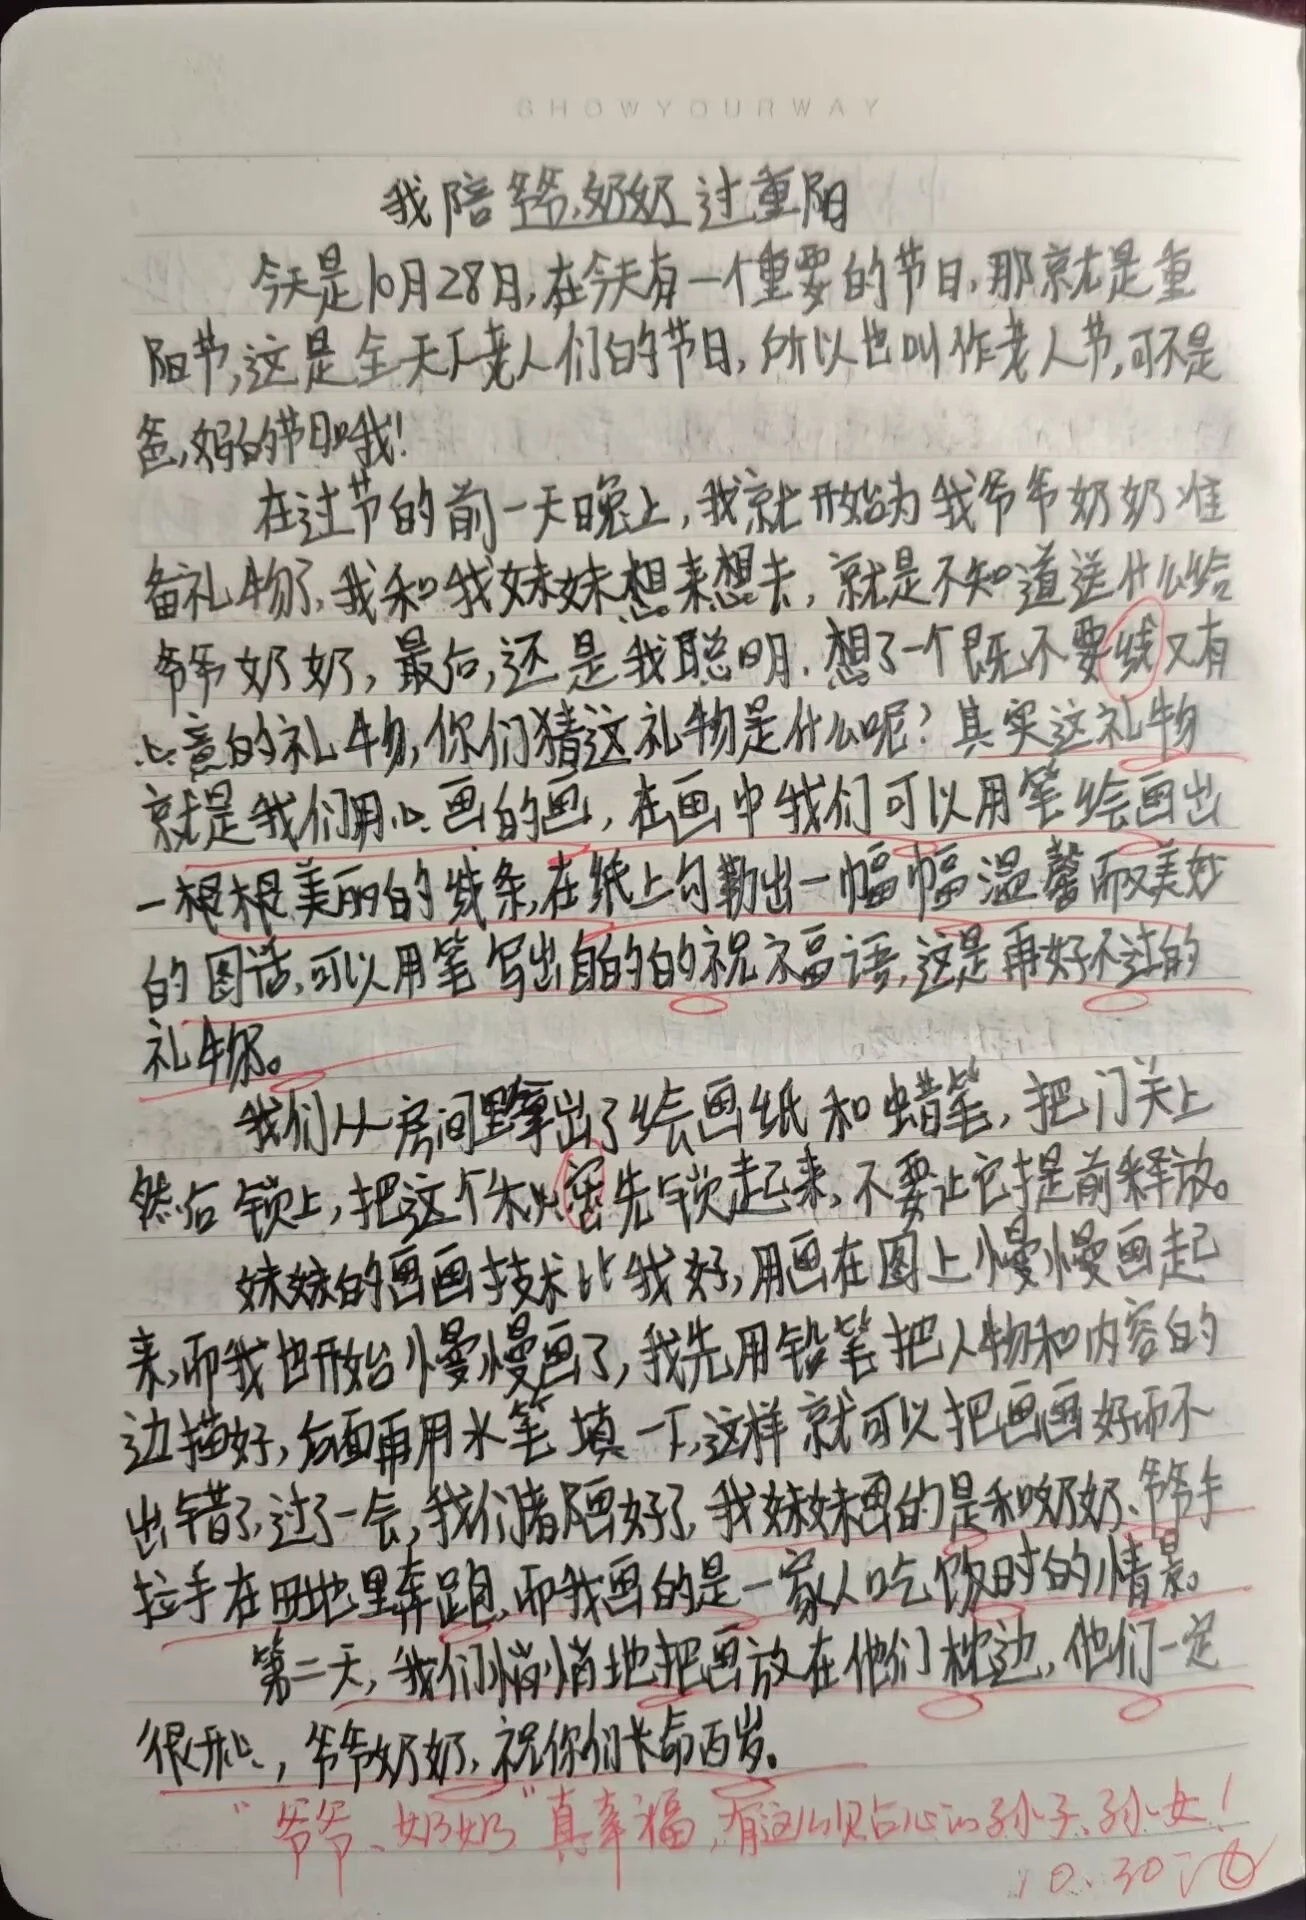 SHOWYOURWAY
我陪爷爷、奶奶过重阳
今天是10月28日,在今天有一个重要的节日,那就是重
阳节,这是全天下老人们的节日,所以也叫作老人节,可不是
爸,妈的节日哦!
在过节的前一天晚上,我就开始为我爷爷奶奶准
备礼物了,我和我妹妹想来想去,就是不知道送什么给
爷爷奶奶,最后,还是我聪明,想了一个既不要线又有
心意的礼物,你们猜这礼物是什么呢?其实这礼物
就是我们用心画的画,在画中我们可以用笔绘画出
一根根美丽的线条,在纸上勾勒出一幅幅温馨而又美妙
的图话,可以用笔写出自的的祝福语,这是再好不过的
礼物。
我们从房间里拿出了绘画纸和蜡笔,把门关上
然后锁上,把这个秘密先锁起来,不要让它提前释放。
妹妹的画画技术比我好,用画在图上慢慢画起
来,而我也开始慢慢画了,我先用铅笔把人物和内容的
边描好,后面再用水笔填一下,这样就可以把画画好而不
出错了,过了一会,我们都画好了,我妹妹画的是和奶奶、爷爷手
拉手在田地里奔跑,而我画的是一家人吃饭时的情景。
第二天,我们悄悄地把画放在他们枕边,他们一定
很开心,爷爷奶奶,祝你们长命百岁。
“爷爷、奶奶”真幸福,有这么贴心的孙子、孙女!
10.30